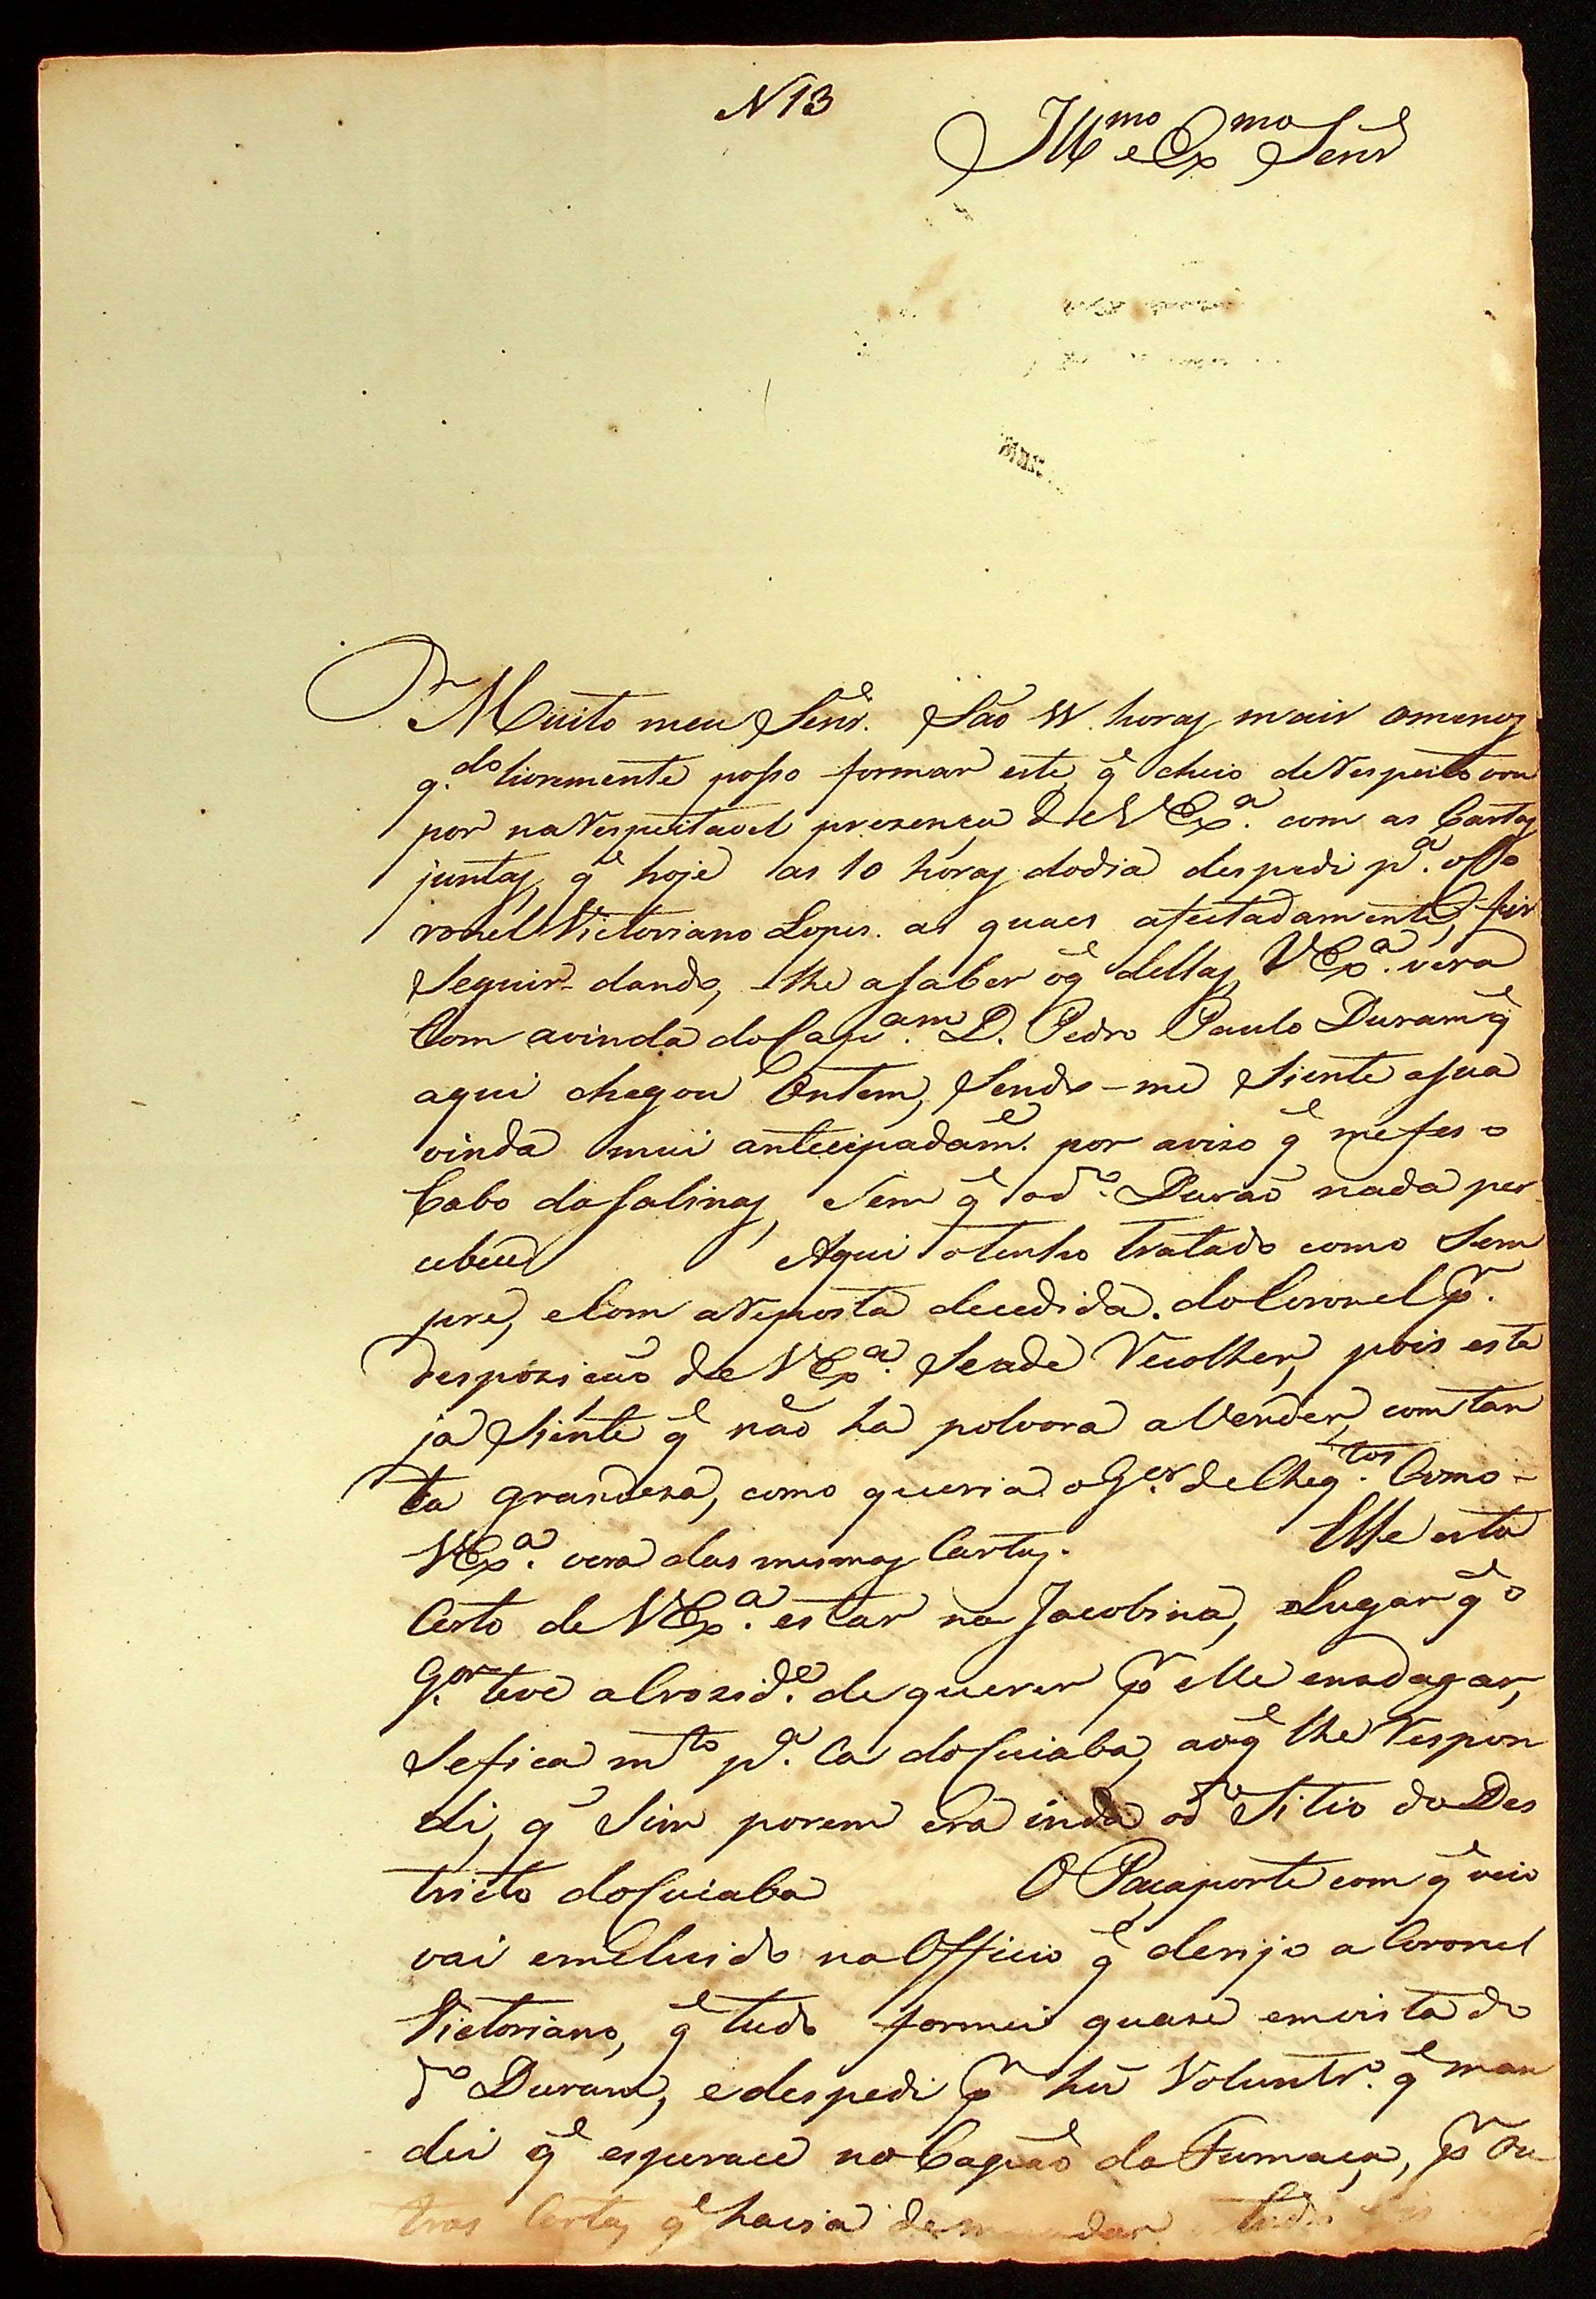 N 13
Ill.mo e Ex.mo Senr
Muito meu Senr. São 11. horas mais omenos
q.do livremente posso formar este, q̃ cheio deRespeito vou
por naRespeitavel prezença de VEx.a com as Cartas
juntas, q̃ hoje as 10 horas dodia despedi p.a oCo
ronel Victoriano Lopes. as quaes afectadamente, fis
Seguir dando, -lhe asaber oq̃ dellas, VEx.a vera
Com avinda doCap.am D. Pedro Paulo Duram q̃
aqui chegou Ontem, Sendo-me Siente asua
vinda mui antecipadam.e por avizo q̃ mefes o
Cabo daSalinas, Sem q̃ od.o Durão nada per
cebece Aqui otenho tratado como Sem
pre, eCom aReposta decedida. doCoronel pr.
despozição de VEx.a Seade Recolher, pois esta
ja Siente q̃ não ha polvora aVender, com tan
ta grandeza, como queria oG.or deCheq.tos Como
VEx.a vera das mesmas Cartas. Elle esta
Certo de VEx.a estar na Jacobina, Lugar q̃ o
G.or teve aCrozid.e de querer pr elle endagar,
Sefica m.to p.a Ca doCuiaba, aoq̃ lhe Respon
di, q̃ Sim porem era inda od.o Sitio doDes
tricto doCuiaba O Paçaporte com q̃ veio
vai emcluido noOfficio q̃ derijo aCoronel
Victoriano, q̃ tudo formei quaze emvista do
d.o Duram, edespedi pr hũ Voluntr.o q̃ man
dei q̃ esperace noCapão da Fumaça, pr Ou
tras Cartas q̃ havia demandar. tudo